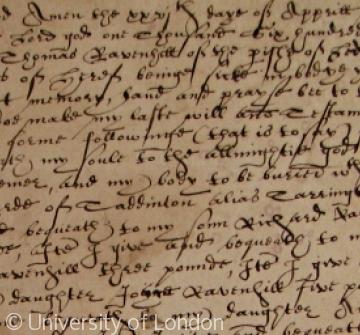 d Amen the xxxjth daye of Aprill
Lord god one Thousand Six hundred
Thomas Ravenhill of the pishe of
s of Heref beinge sicke in bodye
t memory, laud and prayse bee to
doe make my laste will and Testam
forme followinge (that is to say)
th my soule to the allmightie god
emer, and my body to be buried w
rde of Taddinton alias Tarring
d bequeath to my sonn Richard Ra
Itm I give and bequeath to m
avenhill three pounde, Itm I give
daughter Joyne Ravenhill five po
bequeath my daughter
© University of London